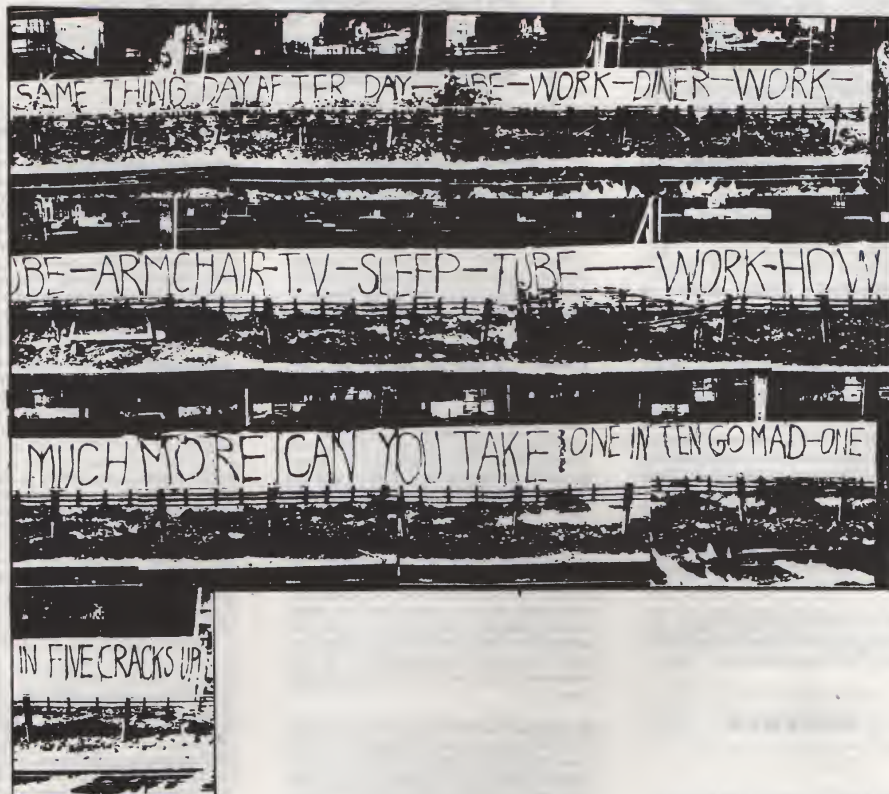 SAME THING DAY AFTER DAY— TUBE—WORK—DINER—WORK—
UBE—ARMCHAIR—T.V.—SLEEP—TUBE——WORK—HOW
MUCH MORE CAN YOU TAKE ONE IN TEN GO MAD—ONE
IN FIVE CRACKS UP